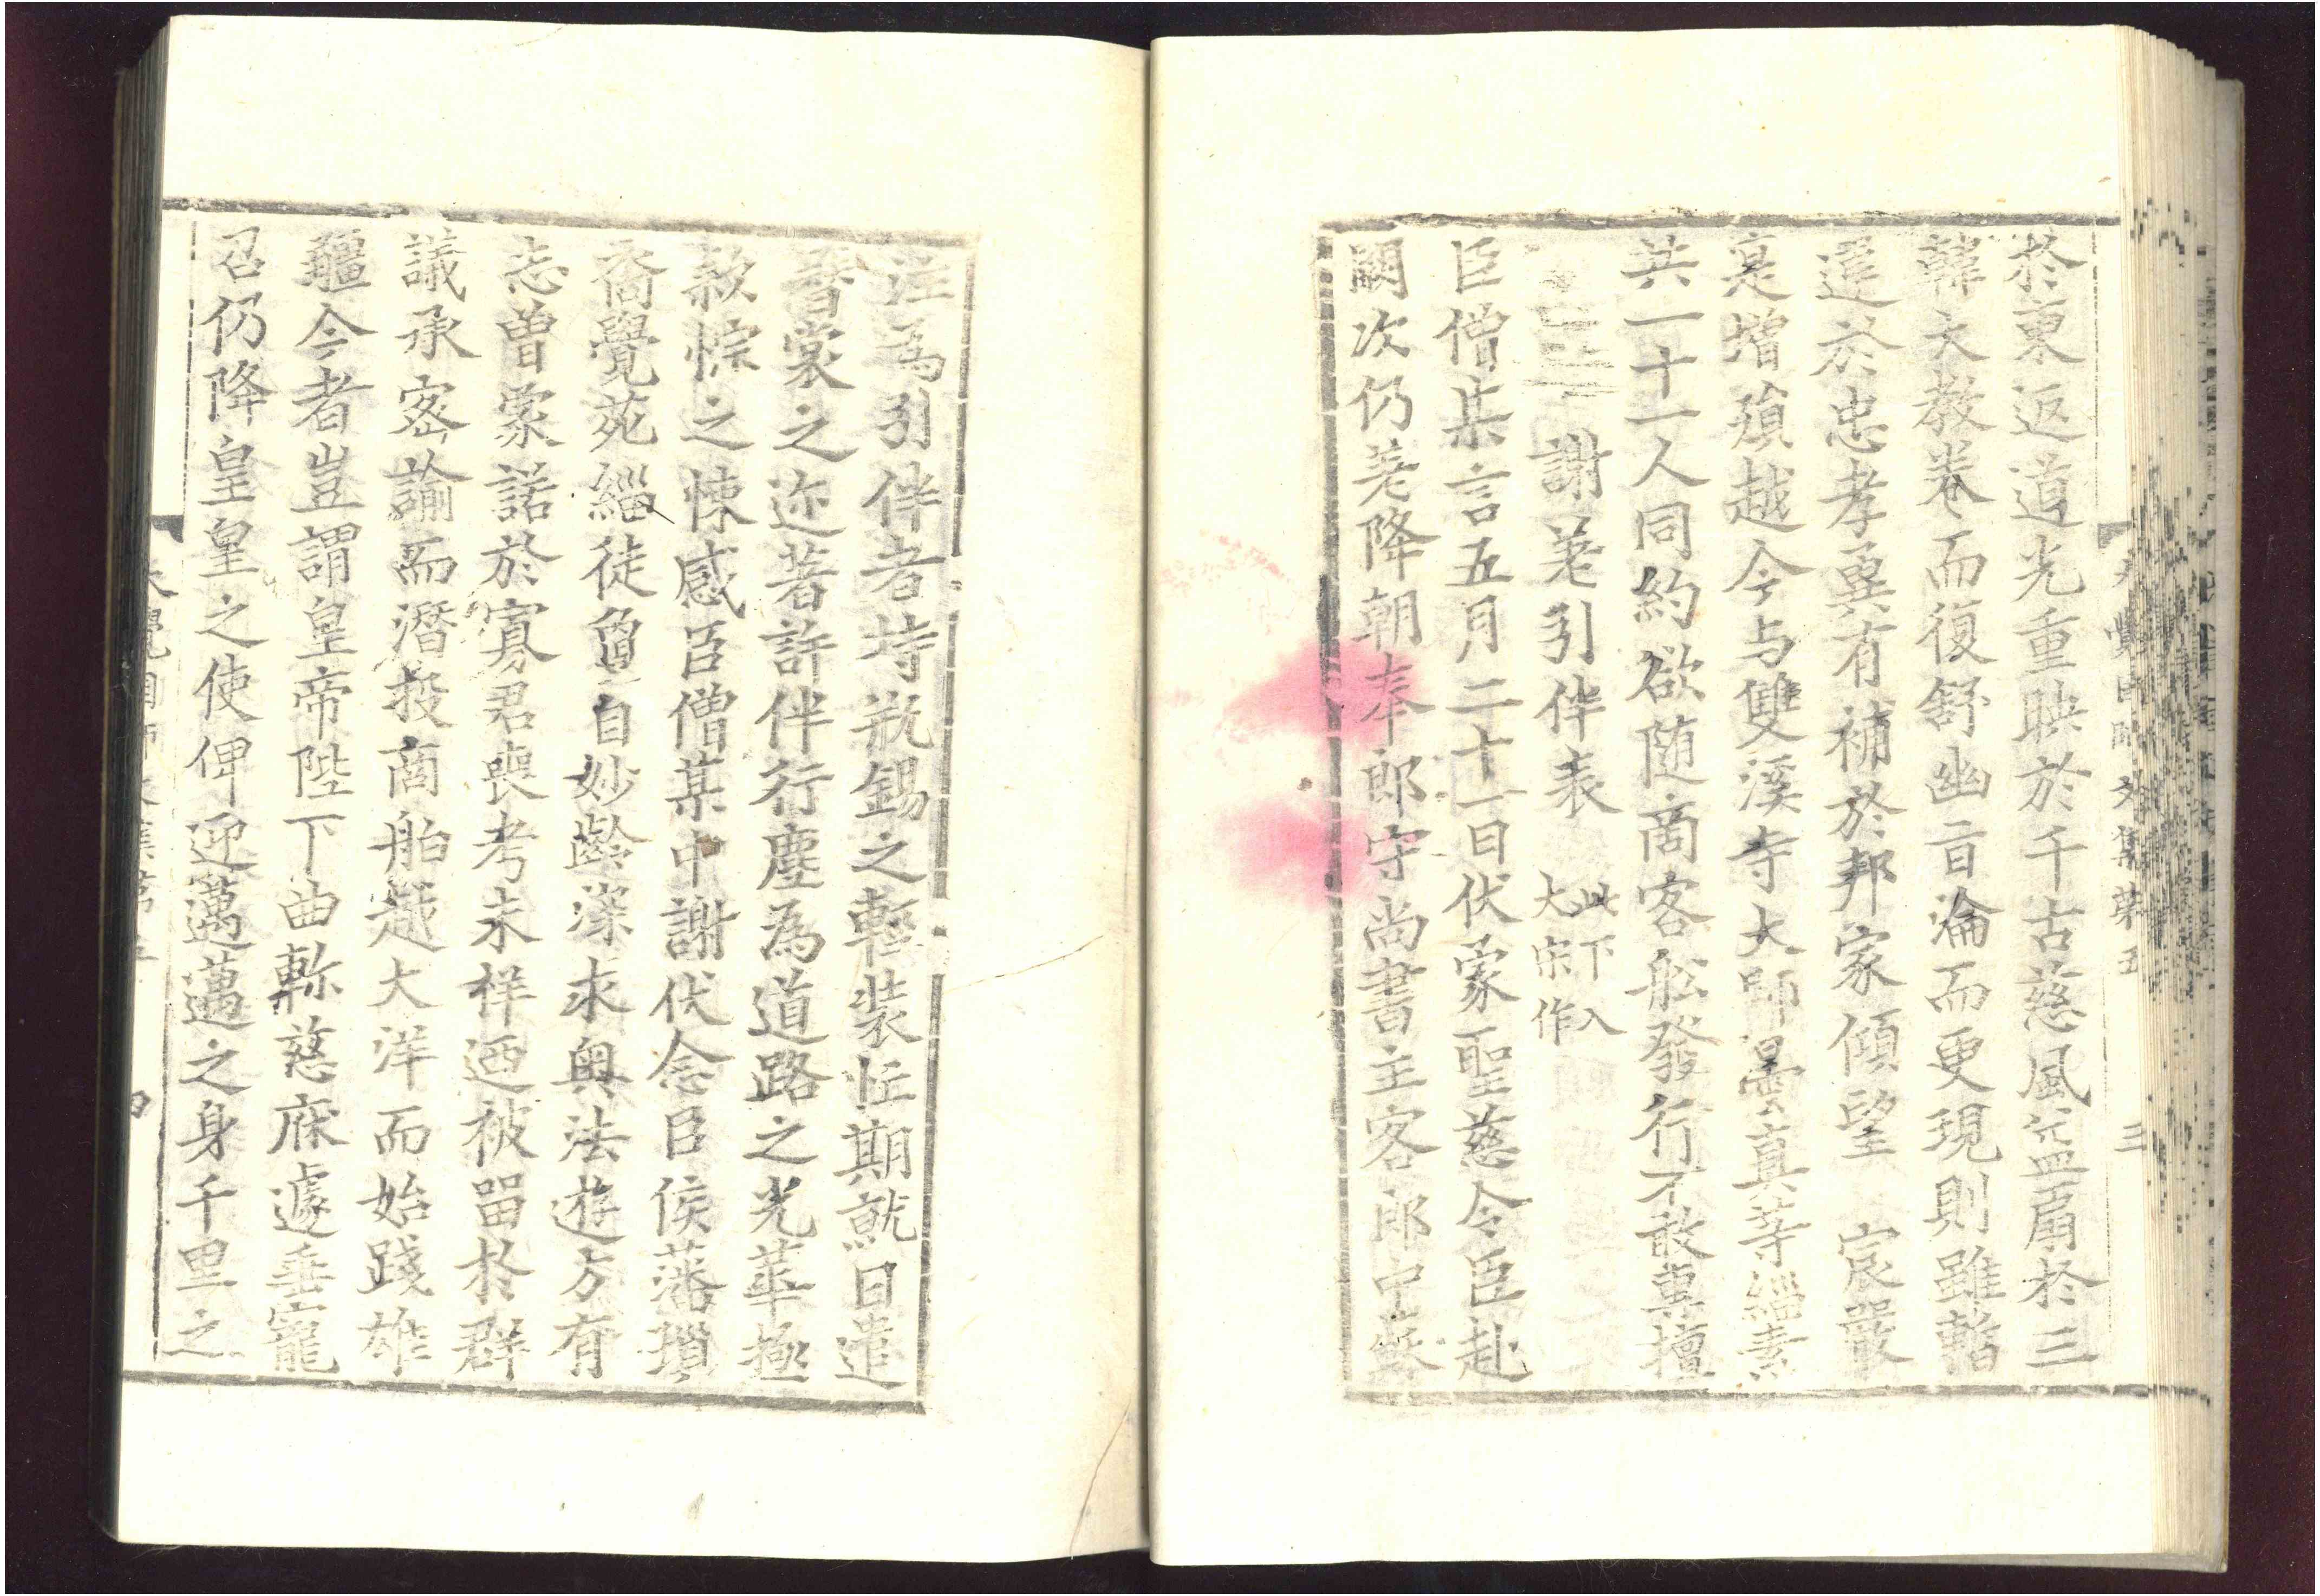 於東返道光重映於千古慈風益扇於三
韓大教卷而復舒幽旨淪而更現則雖暫
違於忠孝異有補於邦家傾望 宸嚴
寔增殞越今与雙溪寺大師曇真等緇素
共一十一人同約欲随商客舩發行不敢壇
謝差引伴表 此下入大宋作
臣僧某言五月二十一日伏蒙聖慈令臣赴
闕次仍差降朝奉郎守尚書主客郎中蘇
注為引伴者持瓶錫之輕裝指期就日遣
裳之迩著許伴行塵為道路之光華極
款悰之悚感臣僧某中謝伏念臣侯藩瑣
裔覺苑緇徒自妙齡深求奧法遊方有
志曾蒙諾於寡君喪考未祥迺被留於群
議承密諭而潛投商舶越大洋而始踐雄
疆今者豈謂皇帝陛下曲軫慈庥遽垂寵
召仍降皇皇之使俾迎邁邁之身千里之
大覺國師外集第五 三
大覺國師外集第五 四